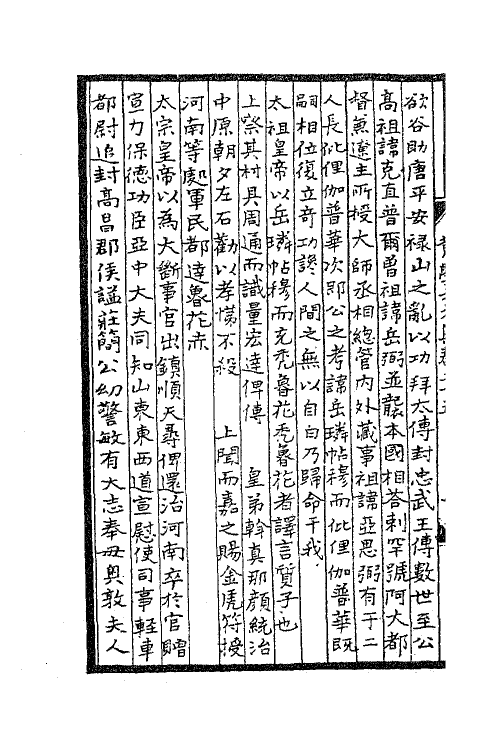 欲谷助唐平安祿山之亂以功拜太傅封忠武王傳數世至公
高祖諱克直普爾曾祖諱岳弼並襲本國相荅剌罕號阿大都
督兼遼主所授大師丞相總管內外藏事祖諱亞思弼有子二
人長仳俚伽普華次即公之考諱岳璘帖穆而仳俚伽普華既
嗣相位復立奇功讒人間之無以自白乃歸命于我
太祖皇帝以岳璘帖穆而充禿魯花禿魯花者譯言質子也
上察其材具周通而識量宏達俾傅 皇弟斡真那顏統治
中原朝夕左右勸以孝悌不殺 上聞而嘉之賜金虎符授
河南等處軍民都達魯花赤
太宗皇帝以為大斷事官出鎮順天尋俾還治河南卒於官贈
宣力保德功臣亞中大夫同知山東東西道宣慰使司事輕車
都尉追封高昌郡侯謚莊簡公幼警敏有大志奉母奧敦夫人